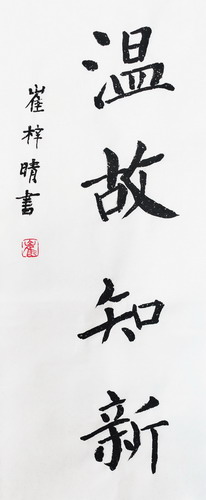 温故知新
崔梓晴書